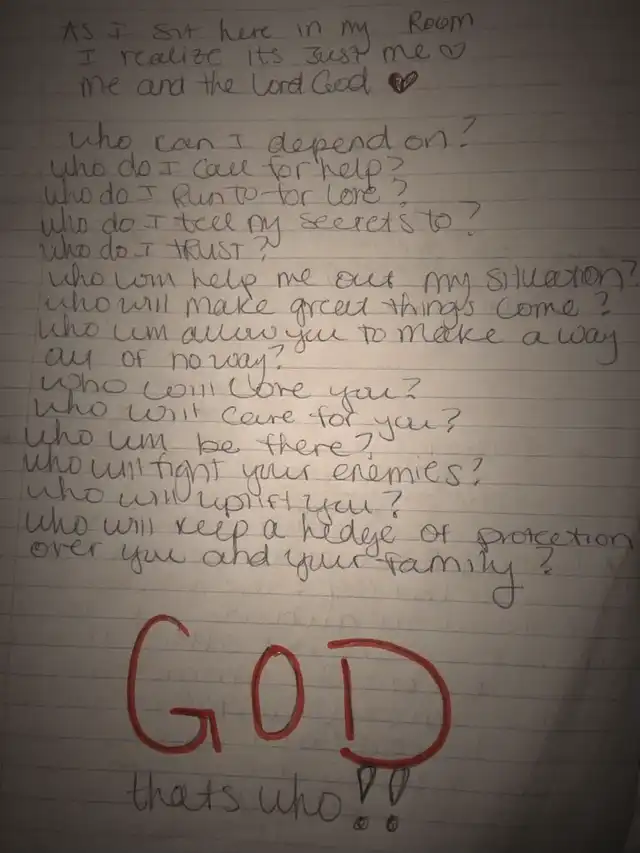 As I sit here in my Room
I realize its Just me
me and the Lord God
who can I depend on?
who do I call for help?
who do I Run to for Love?
who do I tell my secrets to?
who do I TRUST?
who will help me out my situation?
who will make great things come?
who will allow you to make a way
out of no way?
who will Love you?
who will care for you?
who will be there?
who will fight your enemies?
who will uplift you?
who will keep a hedge of protection
over you and your family?
GOD
thats who!!